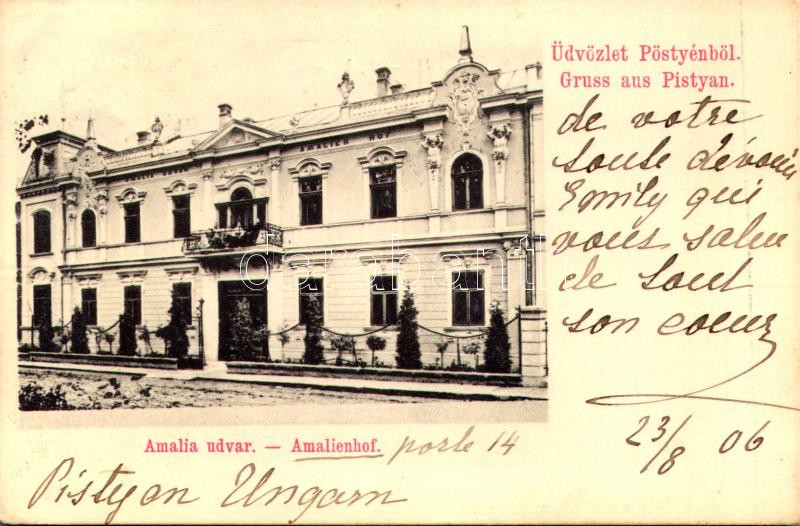 Üdvözlet Pöstyénböl.
Gruss aus Pistyan.
de votre
toute dévouée
Emily qui
vous salue
de tout
son coeur
23/8 06
AMALIA UDVAR
AMALIEN HOF
darabanth
Amalia udvar. — Amalienhof. porte 14
Pistyan Ungarn